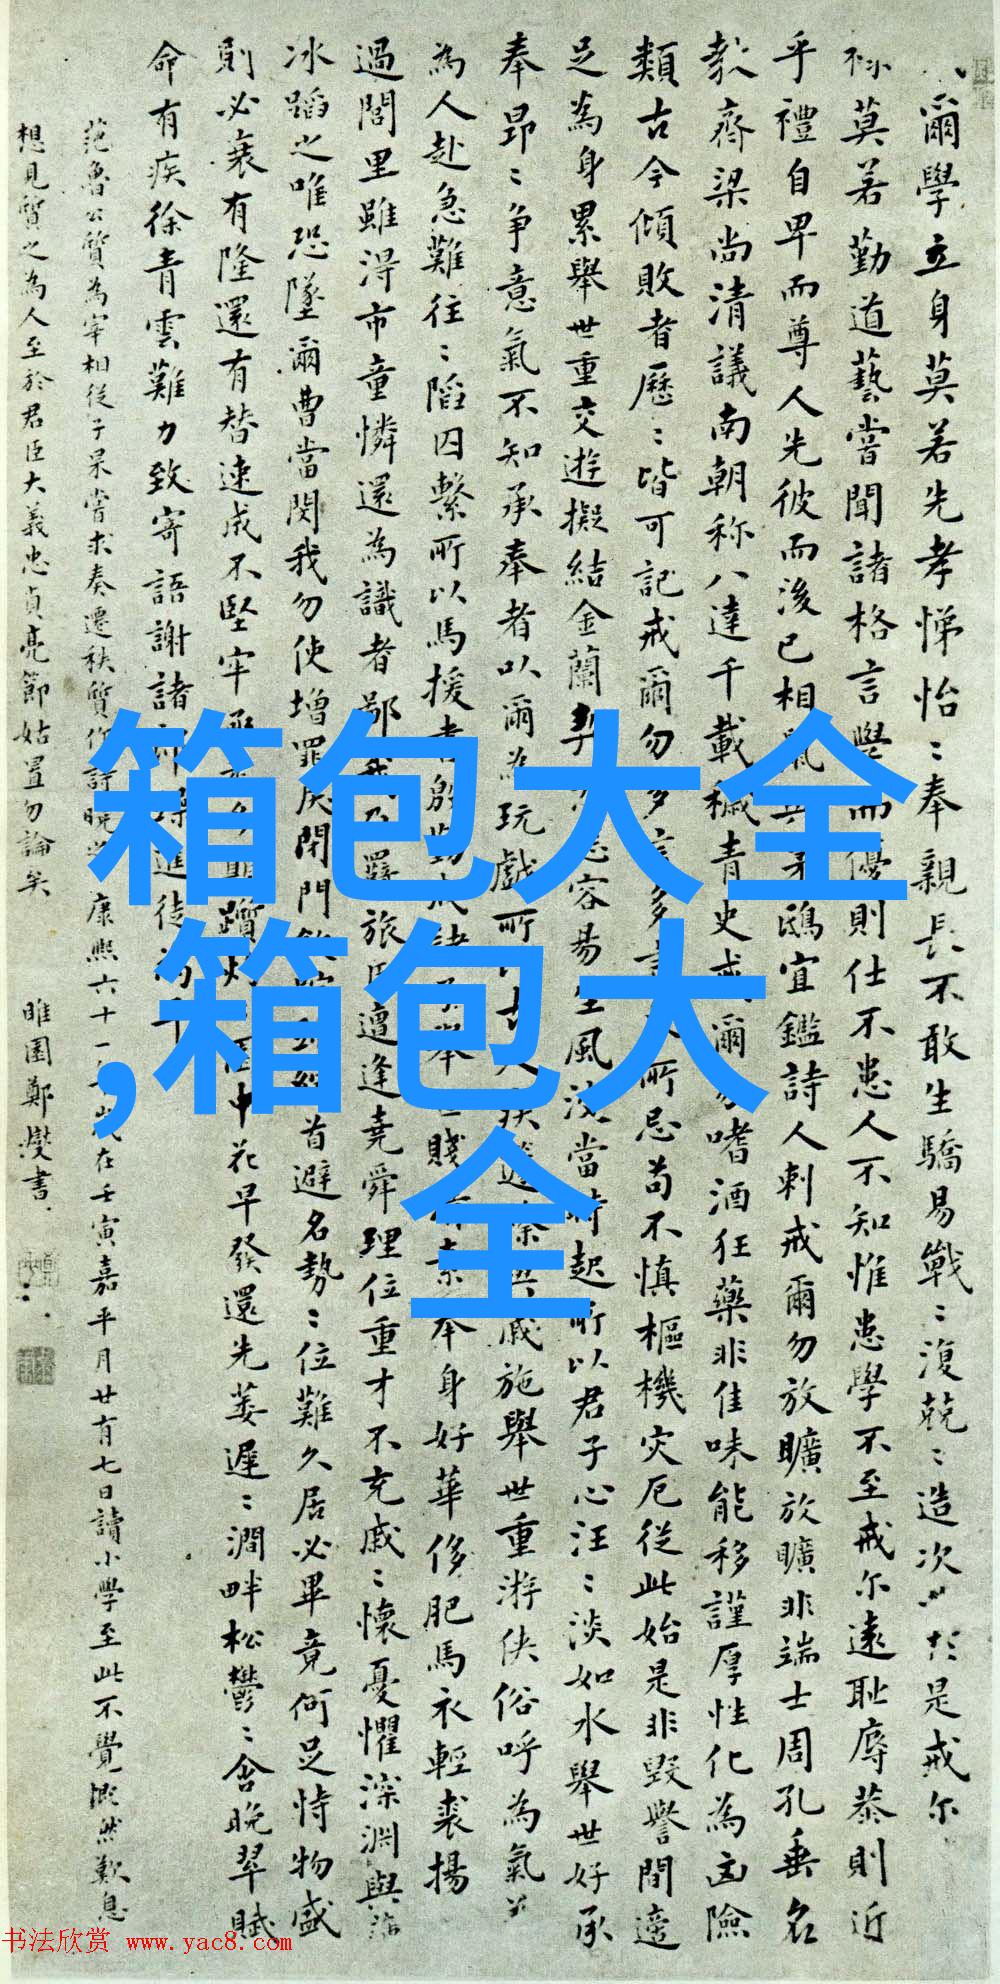 箱包大全
,箱包大
全
爾學立身莫若先孝悌怡〻奉親長不敢生驕易戰〻復兢〻造次 是戒尔
莫若勤道藝嘗聞諸格言學而優則仕不患人不知惟患學不至戒尔遠耻辱恭則近
乎禮自卑而尊人先彼而後己相鼠 鴟宜鑑詩人刺戒爾勿放曠放曠非端士周孔垂名
教齊梁尚清議南朝称八達千載穢青史戒爾勿嗜酒狂藥非佳味能移謹厚性化為凶險
類古今傾敗者歷〻皆可記戒爾勿多言多 所忌苟不慎樞機灾厄從此始是非毀譽間適
足為身累舉世重交遊擬結金蘭 容易生風波當時起所以君子心汪〻淡如水舉世好承
奉昂〻爭意氣不知承奉者以爾為玩戲所 疾 施舉世重游俠俗呼為氣
為人赴急難往〻陷囚繫所以馬援書殷勤戒諸子舉 賤 素奉身好華侈肥馬衣輕裘揚
過閭里雖淂市童憐還為識者鄙我乃羈旅 遭逢堯舜理位重才不充戚〻懷憂懼深淵與
冰蹈之唯恐墜爾曹當閔我勿使增罪戾閉門 首避名勢〻位難久居必畢竟何足恃物盛
則必衰有隆還有替速成不堅牢 躓灼 園中花早發還先萎遲〻澗畔松鬱〻含晚翠賦
命有疾徐青雲難力致寄語謝諸 進徒
范魯公質為宰相從子杲嘗求奏遷秩質作詩曉 康熙六十一 歲在壬寅嘉平月廿有七日讀小學至此不覺慨然歎息
想見質之為人至於君臣大義忠貞亮節姑置勿論矣 睢園鄭燮書
书法欣赏 www.yac8.com